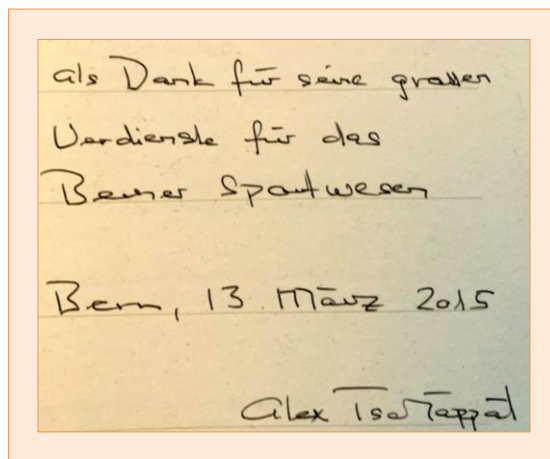 als Dank für seine grossen
Verdienste für das
Berner Sportwesen
Bern, 13. März 2015
Alex Tschäppät